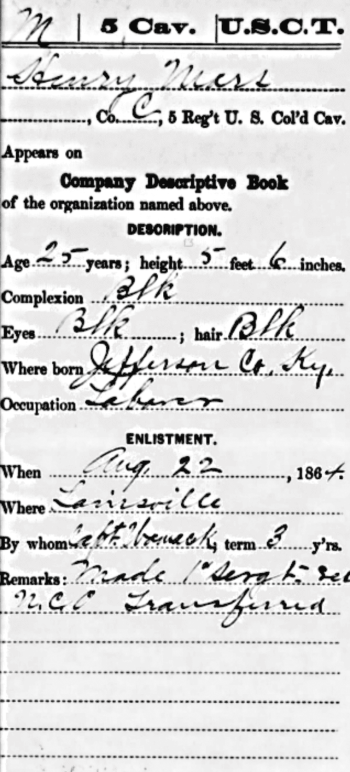 M | 5 Cav. | U.S.C.T.
Henry Mers
, Co. C, 5 Reg't U. S. Col'd Cav.
Appears on
Company Descriptive Book
of the organization named above.
DESCRIPTION.
Age 25 years; height 5 feet 6 inches.
Complexion Blk
Eyes Blk ; hair Blk
Where born Jefferson Co, Ky.
Occupation Laborer
ENLISTMENT.
When Aug 22, 1864.
Where Louisville
By whom Capt. Womack, term 3 y'rs.
Remarks: Made 1" Sergt.
N.C.O Transferred